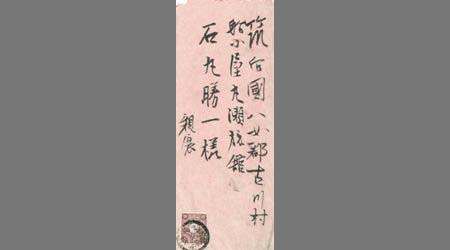 筑后國八女郡古川村
船小屋九瀬旅館
石丸勝一様
親展